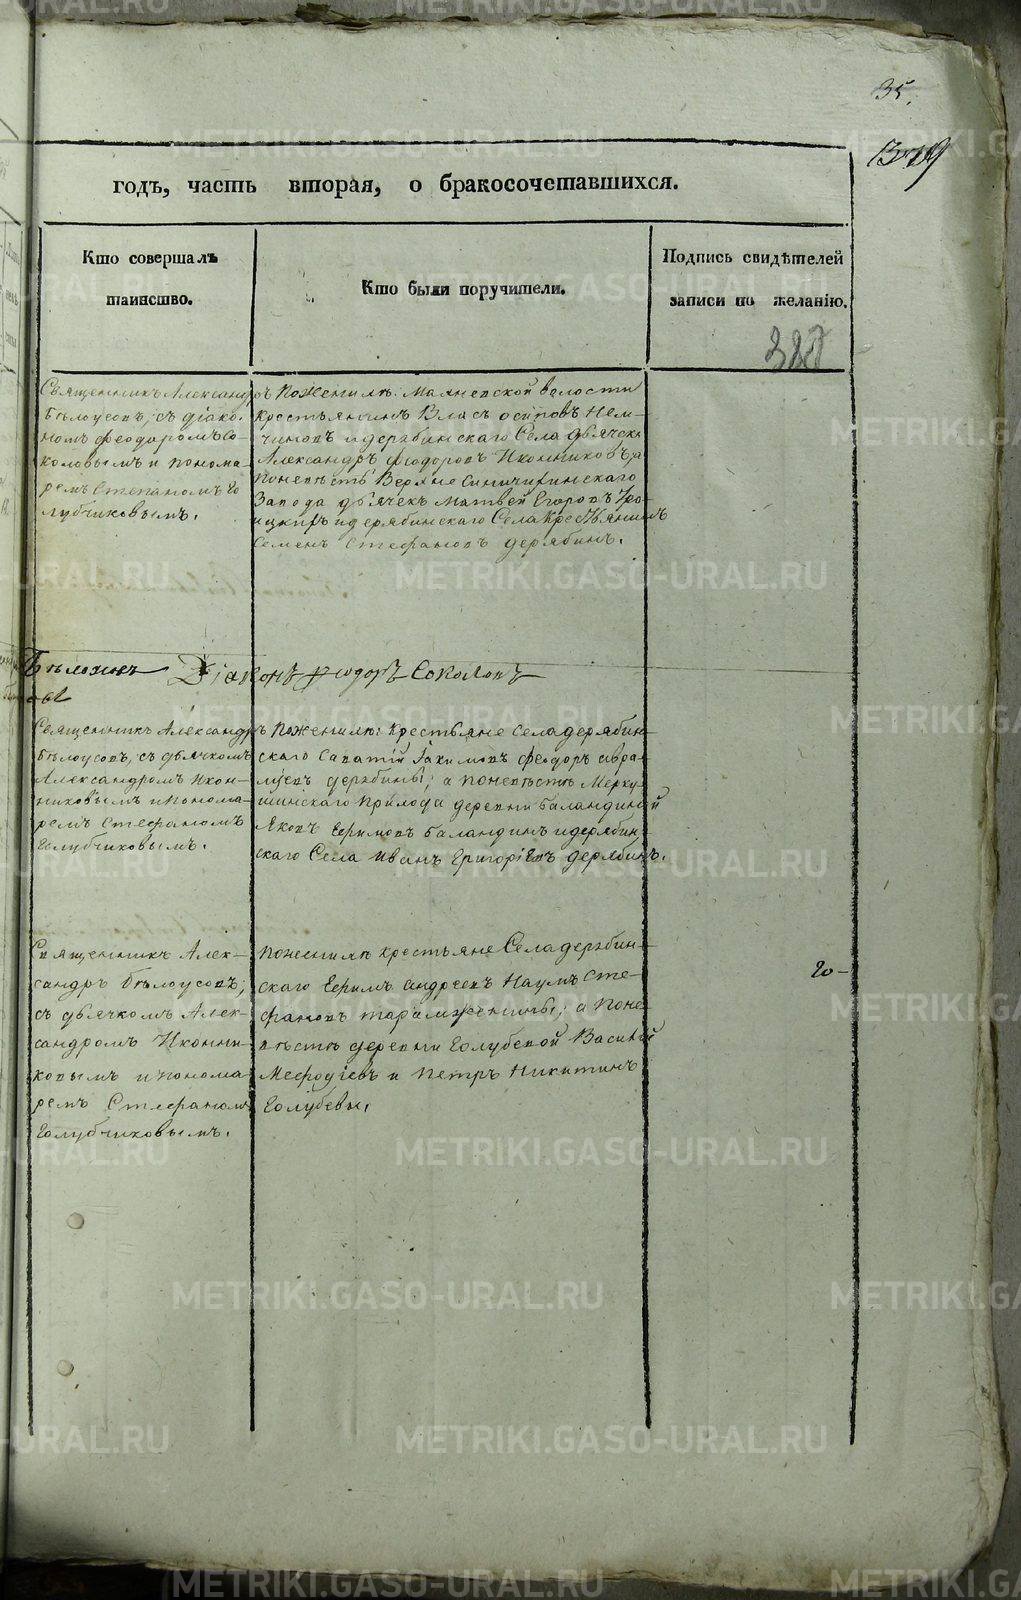 35.
годъ, часть вторая, о бракосочетавшихся.
Кто совершалъ таинство.
Кто были поручители.
Подпись свидѣтелей записи по желанію.
Священникъ Александръ
Бѣлоусовъ, съ діако-
номъ Феодоромъ Со-
коловымъ и понома-
ремъ Степаномъ Го
лубчиковымъ.
По женихѣ: Маяневской волости
крестьянинъ Власъ Осиповъ Нем-
чиновъ и дерябинскаго Села дьячекъ
Александръ Феодоровъ Иконниковъ, а
по невѣстѣ Верхне Синячихинскаго
Завода дьячекъ Матвей Егоровъ
и дерябинскаго Села Крестьянинъ
Семенъ Стефановъ дерябинъ.
Діаконъ Феодоръ Соколовъ
Священникъ Александръ
Бѣлоусовъ, съ дьячкомъ
Александромъ Икон-
никовымъ и понома-
ремъ Стефаномъ
Голубчиковымъ.
По женихѣ: крестьяне Села дерябин-
скаго Саватій Іакимовъ Феодоръ Авра-
дерябины; а по невѣстѣ Мерку-
шинскаго прихода деревни баландиной
Яковъ Ефимовъ баландинъ и дерябин-
скаго Села Иванъ Григоріевъ дерябинъ.
Священникъ Алек-
сандръ Бѣлоусовъ,
съ дьячкомъ Алек-
сандромъ Иконни-
ковымъ и понома-
ремъ Стефаномъ
Голубчиковымъ.
По женихѣ крестьяне Села дерябин-
скаго Ефимъ Андреевъ Наумъ Сте-
фановъ тараженины; а по не-
вѣстѣ деревни Голубевой Василій
Мефодіевъ и Петръ Никитинъ
Голубевы.
METRIKI.GASO-URAL.RU